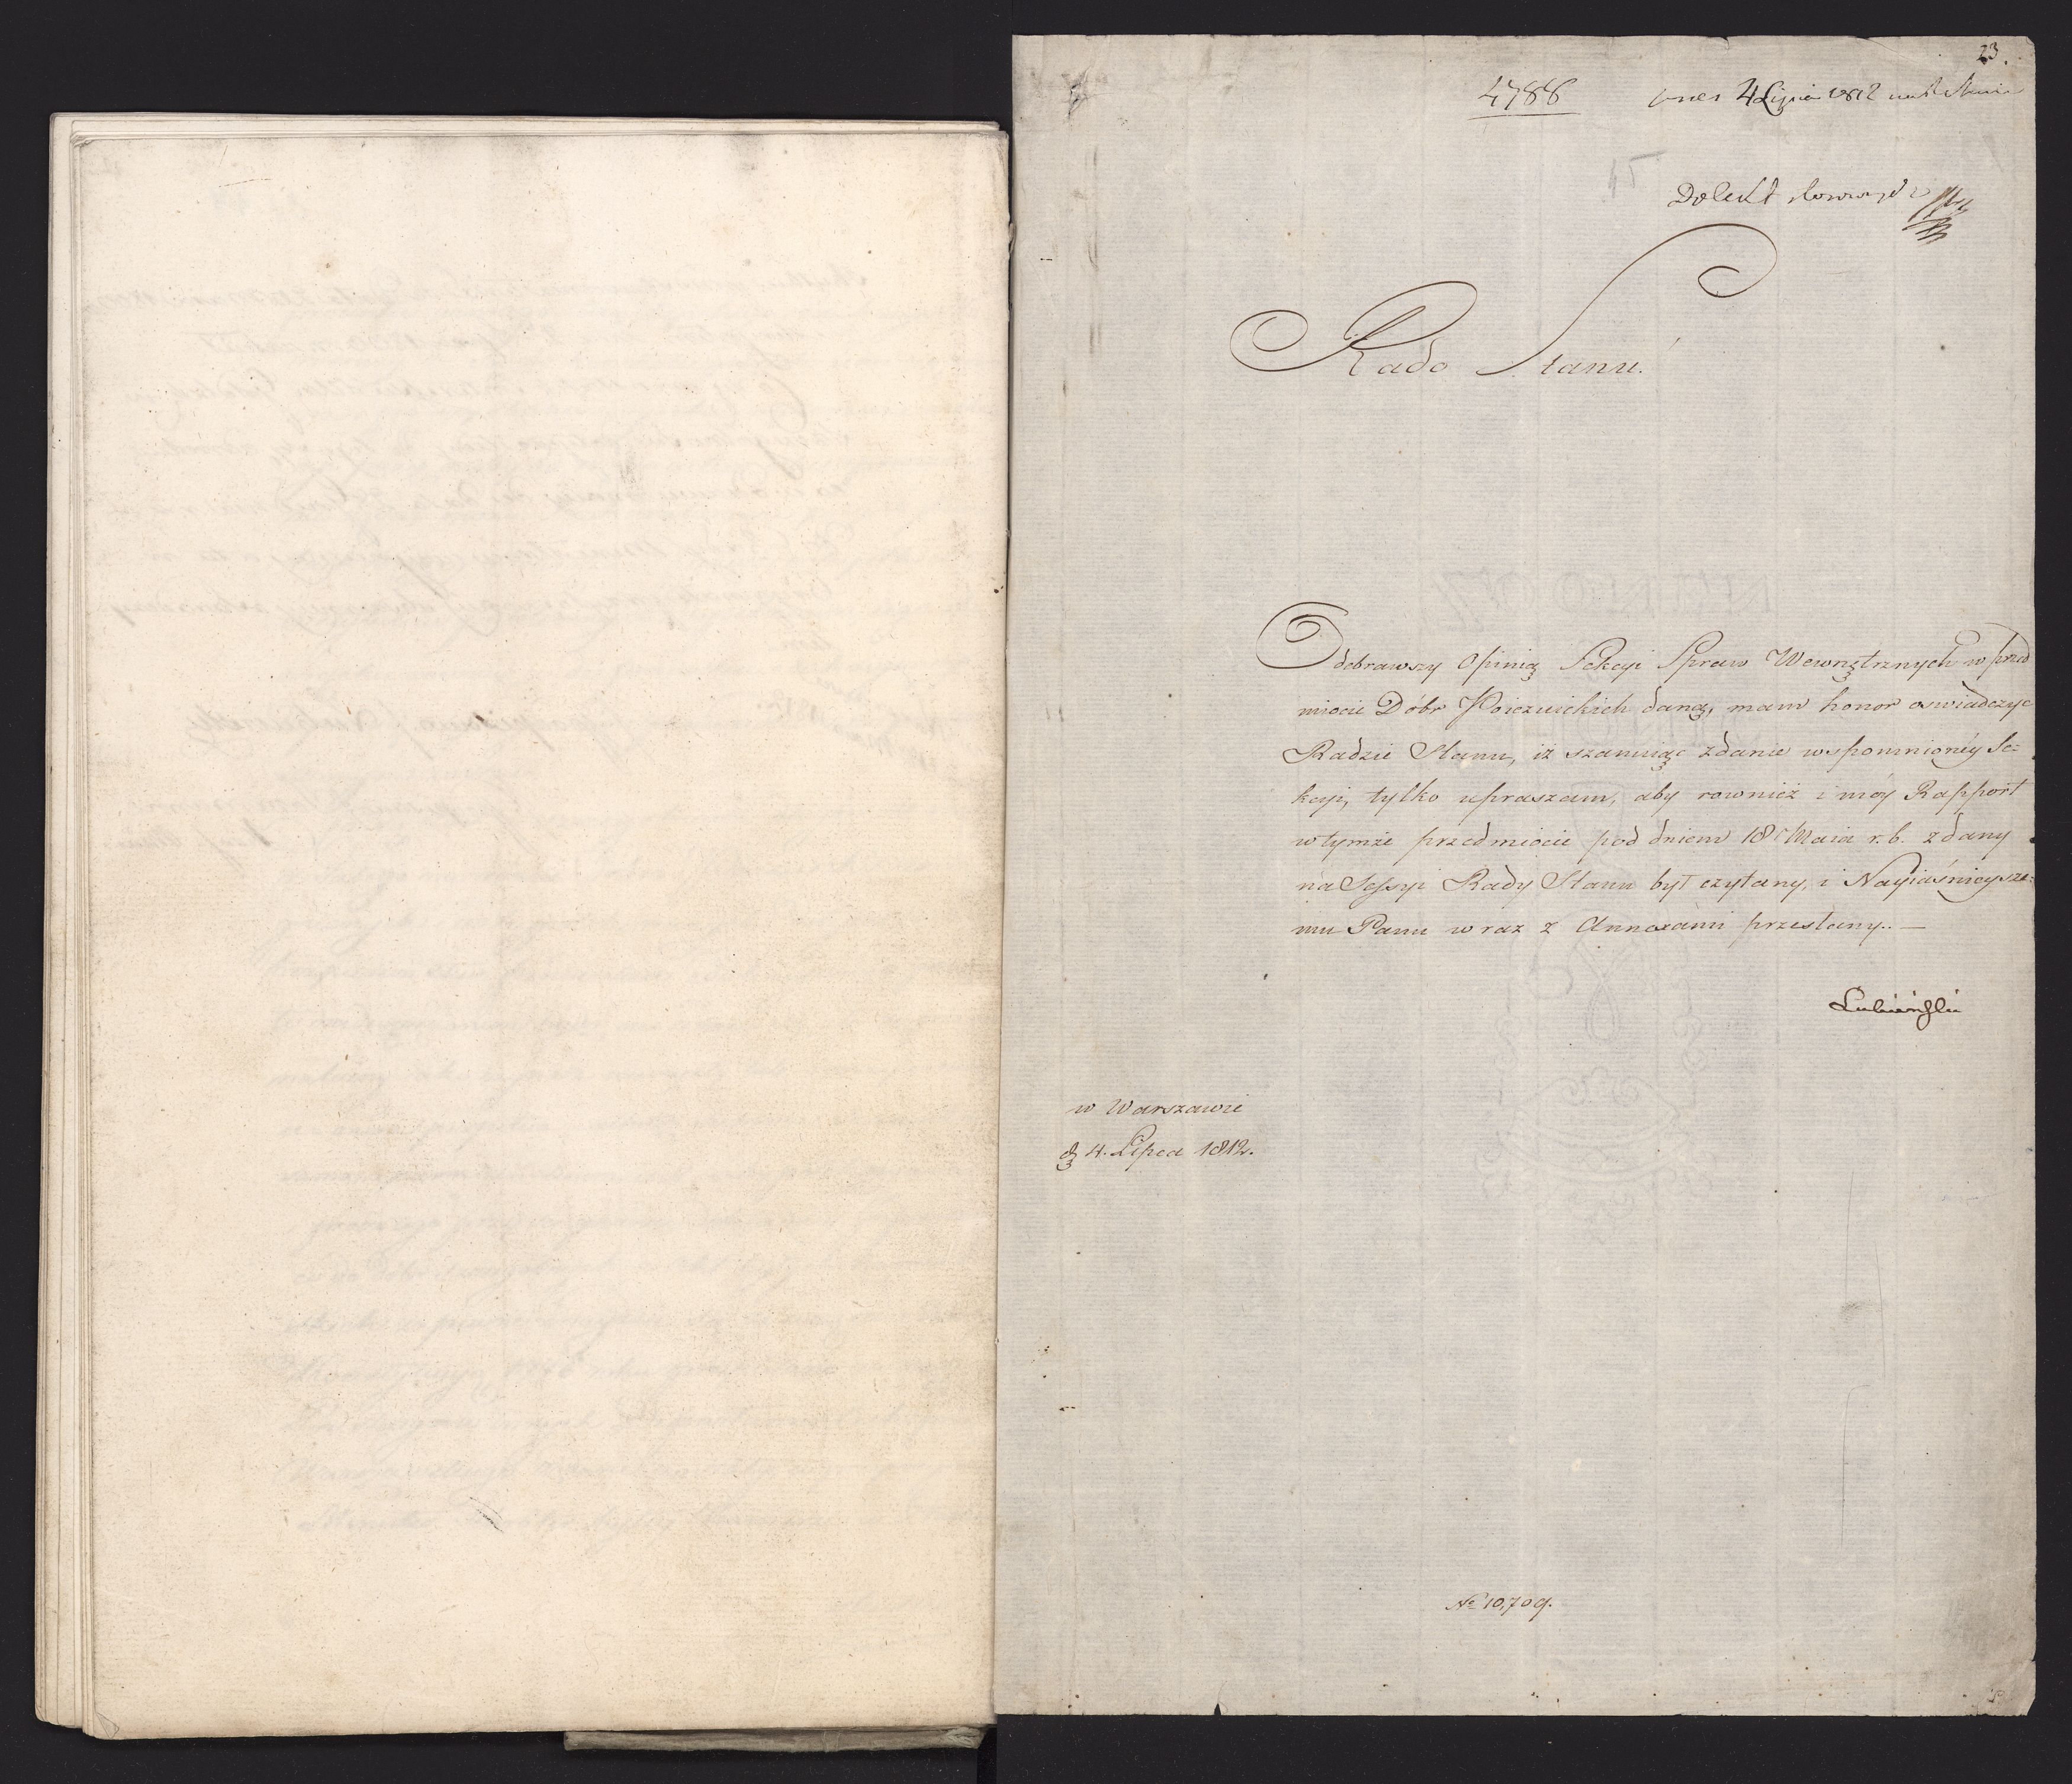 23.
4788
4 Lipca 1812
15
Do lekt
Rado Stanu!
Odebrawszy Opinią Sekcyi Spraw Wewnątrznych w przed
miocie Dóbr daną, mam honor oswiadczyc
Radzie Stanu, iż szanuiąc zdanie wspomnioney Se=
kcyi, tylko upraszam, aby rownież i móy Rapport
w tymże przedmiocie pod dniem 18 Maia r. b. zdany
na Sessyi Rady Stanu był czytany, i Nayiaśnieysze=
mu Panu wraz z Annexami przesłany. —
Lubieński
w Warszawie
d. 4. Lipca 1812.
No 10,709.